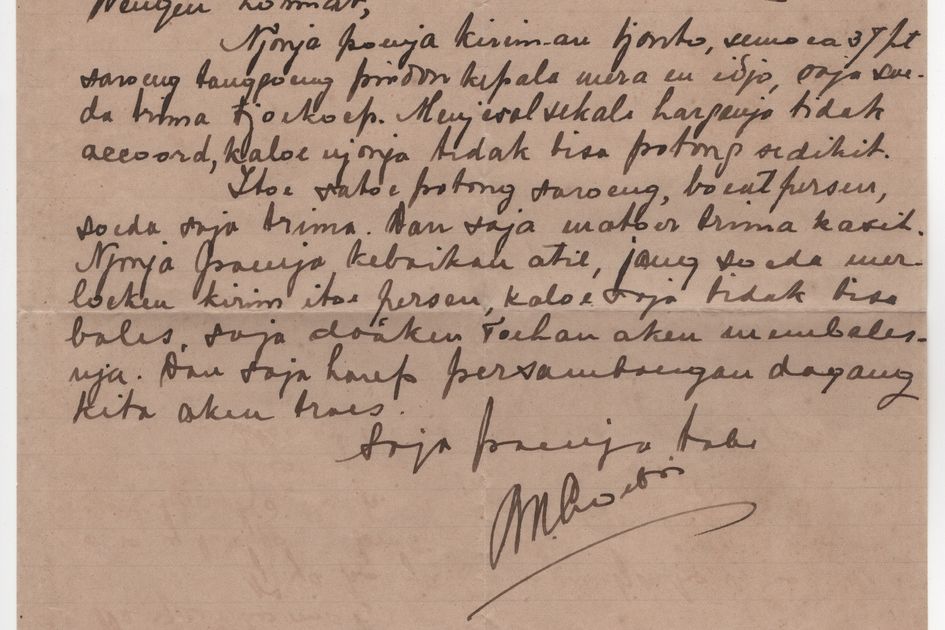 Dengen hormat,
Njonja poenja kirim-an tjonto, semoea 37 pt
saroeng tanggoeng pindon kepala mera en idjo, saja soe-
da trima tjoekoep. Menjesal sekali harganja tidak
accoord, kaloe njonja tidak bisa potong sedikit.
Itoe satoe potong saroeng, boeat persen,
soeda saja trima. Dan saja matoer trima kasih.
Njonja poenja kebaikan atie, jang soeda mer-
loeken kirim itoe persen, kaloe saja tidak bisa
bales, saja doäken Toehan aken membales-
nja. Dan saja harep persamboengan dagang
kita aken troes.
Saja poenja tabe